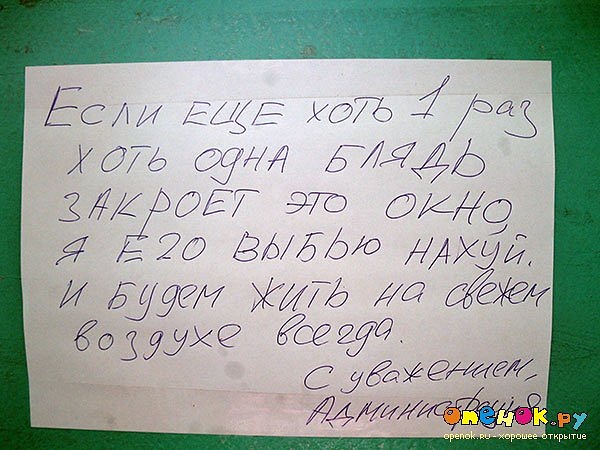 Если еще хоть 1 раз
хоть одна блядь
закроет это окно,
я его выбью нахуй.
и будем жить на свежем
воздухе всегда.
С уважением,
Администрация
опенок.ру
openok.ru - хорошее открытие